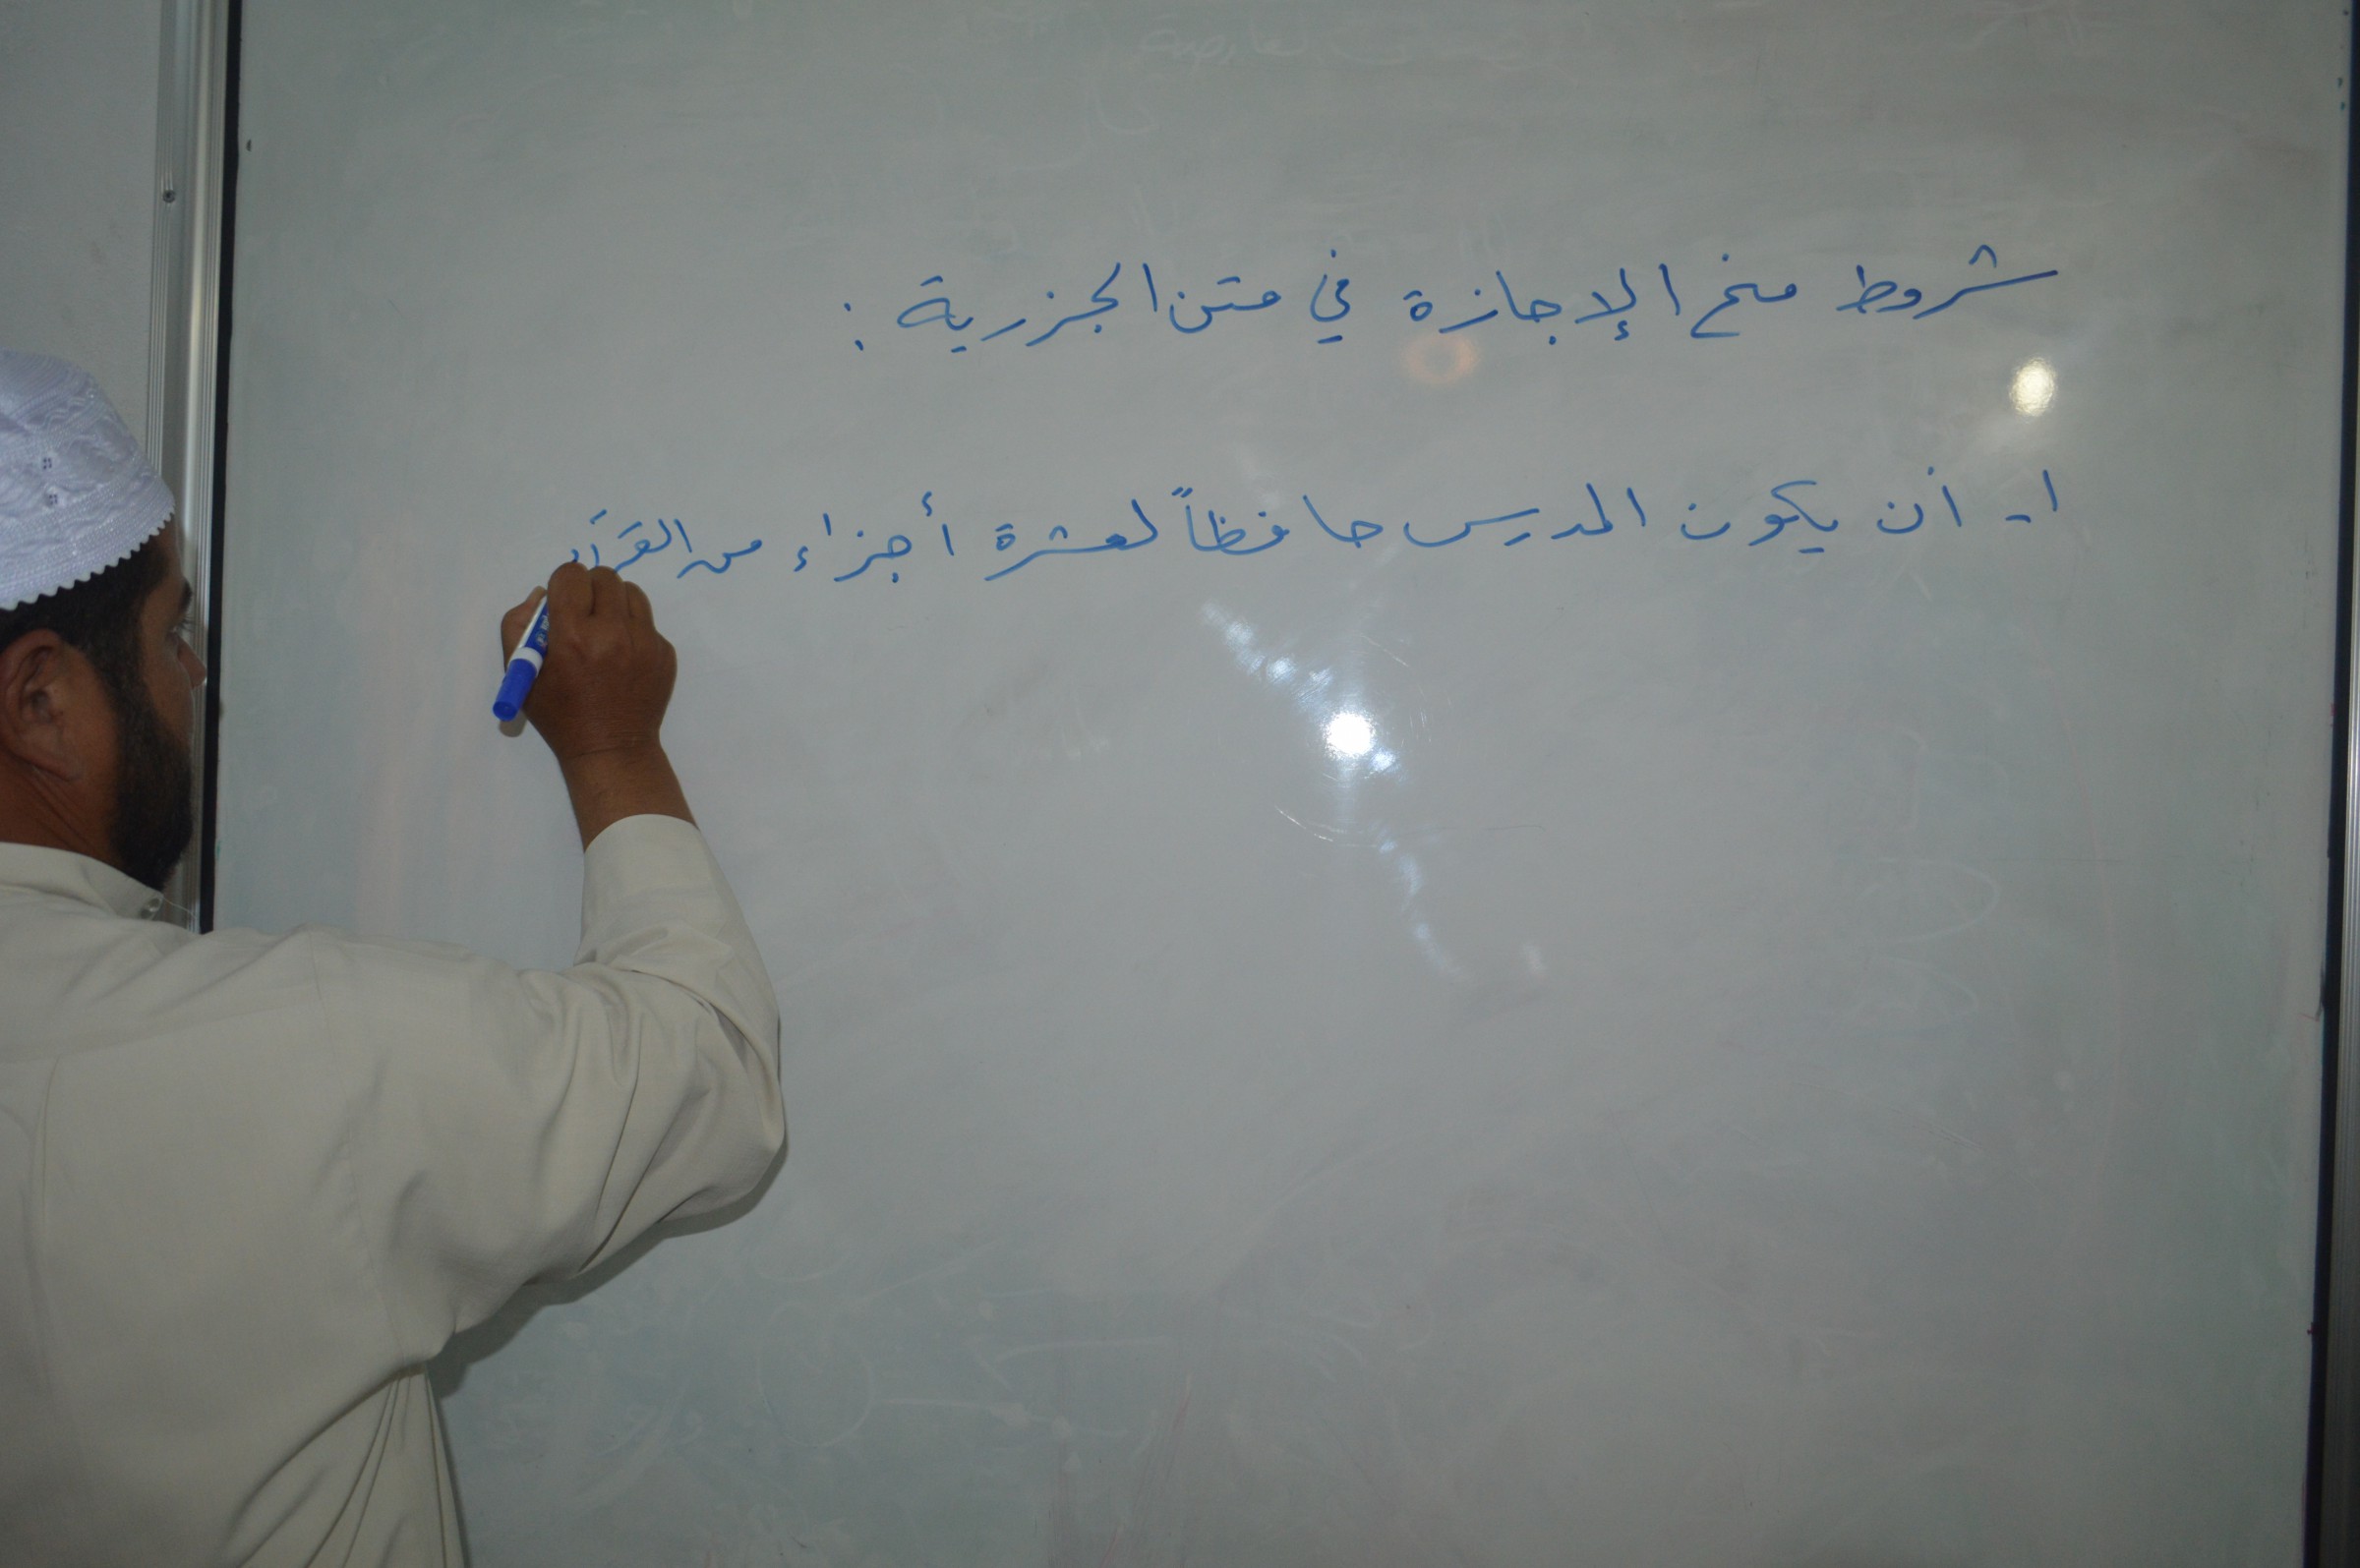 شروط منح الإجازة في متن الجزرية :
١- أن يكون المدرس حافظاً لعشرة أجزاء من القرآن